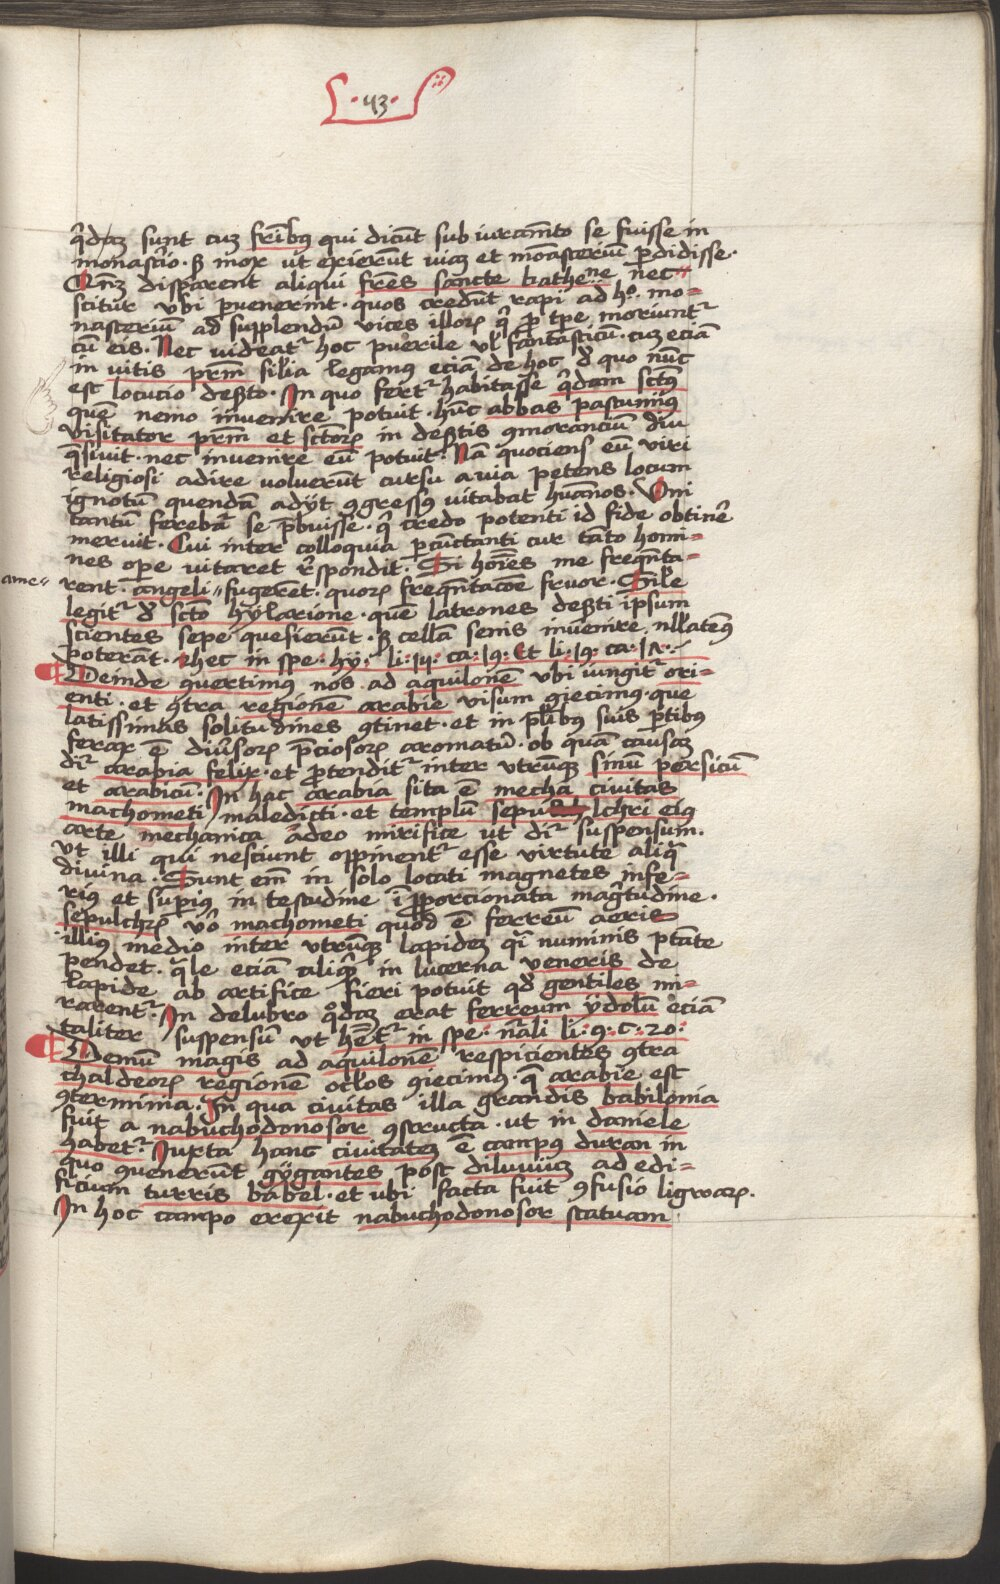 ·43·
q̃daʒ sunt cuʒ fr̃ibꝰ qui dicũt sub iuram̃to se fuisse in
monast̃io · sʒ mox ut exierũt viaʒ et monasteriũ p̱didisse ·
Qñʒ disparent aliqui fr̃es sancte kathe:ne nec〃
scitur vbi p̱venerint · quos credũt rapi ad hº· mo=
nasteriũ ad supplendũ vices illoꝝ q̃ p̱ tp̱e moriuntᷣ
cũ eis · Nec videatᷣ hoc puerile vl̃ fantasticũ · cuʒ eciã
in vitis pr̃m sil̃ia legamus eciã de hoc d̕ quo nũc
est locucio des̃to · In quo fertᷣ habitasse q̃dam sc̃tus
quẽ nemo invenire potuit · hũc abbas pastumiꝰ
visitator pr̃m et sc̃toꝝ in des̃tis ꝯmoranciũ diu
q̃siuit · nec invenire eũ potuit · Nã quociens eũ viri
religiosi adire voluerũt cursu avia petens locum
ignotũ quendã adyt ꝯgressꝰ vitabat hũanos · Vni
tantũ ferebãt se p̃buisse · q̃ credo potenti id fide obtinẽ
meruit · Cui inter colloquia p̱cũctanti cur tãto homi=
nes op̱e vitaret r̃spondit · Si hoĩes me freq̃nta=
ame〃
rent · angeli〃 fugerent · quoꝝ freq̃ntacõe fruor · Sil̃e
legitᷣ d̕ sc̃to hylarione · quẽ latrones des̃ti ipsum
scientes sepe quesierũt · sʒ cellã senis invenire nl̃latenꝰ
poterãt · hec in spe · hy · li · iii · ca · 19 · Et li · 19 · ca · 17 ·
Deinde ꝯvertimus nos ad aquilonẽ vbi iungitᷣ ori=
enti · et ꝯtra regionẽ arabie visum ꝯiecimꝰ · que
latissimas solitudines ꝯtinet · et in pl̃ibꝰ suis p̱tibꝰ
ferax ẽ diũsoꝝ p̃ciosoꝝ aromatũ · ob quã causaʒ
diᷣ arabia felix · et p̱tenditᷣ inter vtrũqʒ sinũ persicũ
et arabicũ · In hac arabia sita ẽ mecha civitas
machometi maledicti · et templũ sepu lchri eiꝰ
arte mechanica adeo mirifice ut diᷣ suspensum ·
vt illi qui nesciunt oppinentᷣ esse virtute aliq̃
divina · Sunt em̃ in solo locati magnetes infe=
riꝰ et supi̱ꝰ in testudine ĩ p̱porcionata mag̃tudine ·
sepulchꝝ vº machometi quod ẽ ferreũ aeris
illiꝰ medio inter vtrũqʒ lapideʒ q̃i numinis ptãte
pendet · q̃le eciã aliq̃ in lucerna veneris de
lapide ab artifice fieri potuit qd̕ gentiles mi=
rarentᷣ · In delubro q̊daʒ erat ferreum ydolũ eciã
taliter suspensũ vt hẽtᷣ in spe · nãli li · 9 · c · 20 ·
Demũ magis ad aquilonẽ respicientes ꝯtra
chaldeoꝝ regionẽ ocl̃os ꝯiecimꝰ · q̃ arabie est
ꝯterminia · In qua civitas illa grandis babilonia
fuit a nabuchodonosor ꝯstructa · ut in daniele
habetᷣ · Iuxta hanc civitateʒ ẽ campꝰ duran in
quo ꝯvenerũt gygantes post diluviuʒ ad edi=
ficium turris babel · et ubi facta fuit ꝯfusio ligwaꝝ ·
In hoc campo erexit nabuchodonosor statuam